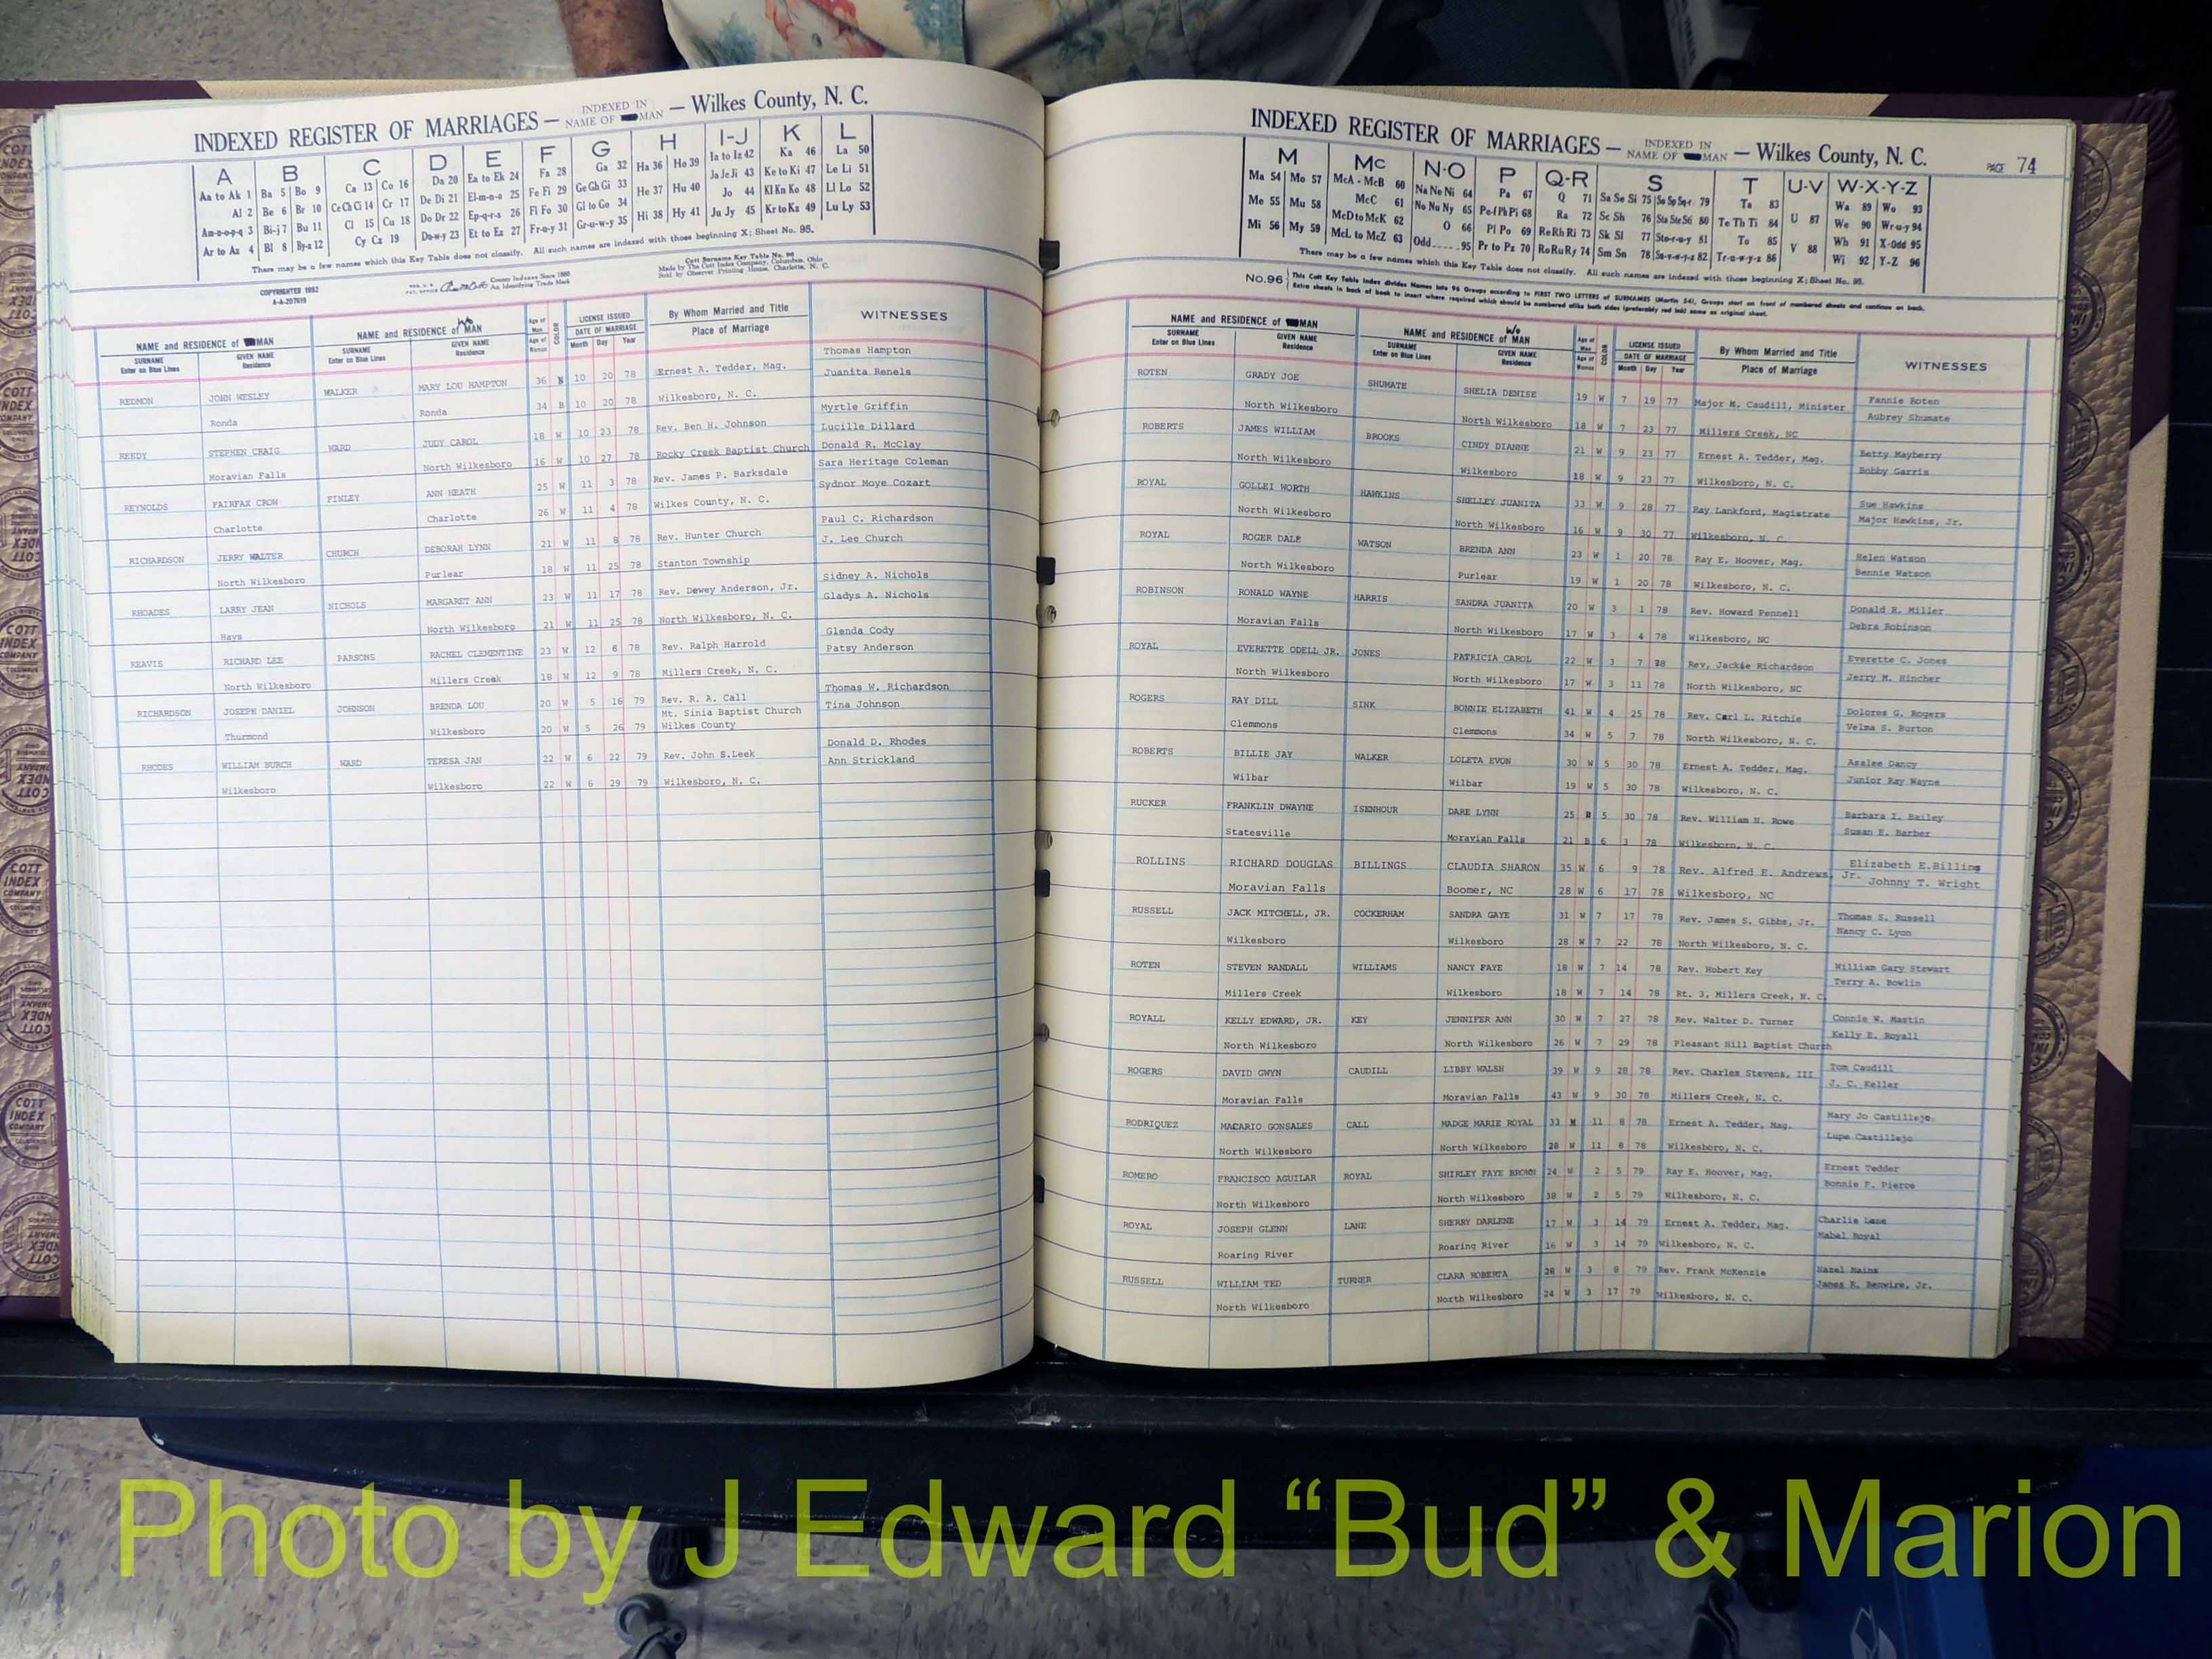 INDEXED REGISTER OF MARRIAGES — INDEXED IN NAME OF MAN — Wilkes County, N. C.
A B C D E F G H I-J K L
Aa to Ak 1 Ba 5 Bo 9 Ca 13 Co 16 Da 20 Ea to Ek 24 Fa 28 Ga 32 Ha 36 Ho 39 Ia to Iz 42 Ka 46 La 50
Al 2 Be 6 Br 10 Ce Ch Ci 14 Cr 17 De Di 21 El-m-n-o 25 Fe Fi 29 Ge Gh Gi 33 He 37 Hu 40 Ja Je Ji 43 Ke to Ki 47 Le Li 51
Am-n-o-p-q 3 Bi-j 7 Bu 11 Cl 15 Cu 18 Do Dr 22 Ep-q-r-s 26 Fl Fo 30 Gl to Go 34 Hi 38 Hy 41 Jo 44 Kl Kn Ko 48 Ll Lo 52
Ar to Az 4 Bl 8 By-z 12 Cy Cz 19 Du-w-y 23 Et to Ez 27 Fr-u-y 31 Gr-u-w-y 35 Ju Jy 45 Kr to Kz 49 Lu Ly 53
There may be a few names which this Key Table does not classify. All such names are indexed with those beginning X; Sheet No. 95.
COPYRIGHTED 1952
A-A-207619
County Indexes Since 1888
An Identifying Trade Mark
Cott Surname Key Table No. 96
Made by The Cott Index Company, Columbus, Ohio
Sold by Observer Printing House, Charlotte, N. C.
NAME and RESIDENCE of MAN NAME and RESIDENCE of Wo MAN Age of Man Age of Woman COLOR LICENSE ISSUED DATE OF MARRIAGE By Whom Married and Title WITNESSES
SURNAME Enter on Blue Lines GIVEN NAME Residence SURNAME Enter on Blue Lines GIVEN NAME Residence Month Day Year Place of Marriage
Thomas Hampton
REDMON JOHN WESLEY WALKER MARY LOU HAMPTON 36 B 10 20 78 Ernest A. Tedder, Mag. Juanita Renels
Ronda Ronda 34 B 10 20 78 Wilkesboro, N. C.
Myrtle Griffin
REEDY STEPHEN CRAIG WARD JUDY CAROL 18 W 10 23 78 Rev. Ben H. Johnson Lucille Dillard
Moravian Falls North Wilkesboro 16 W 10 27 78 Rocky Creek Baptist Church Donald R. McClay
Sara Heritage Coleman
REYNOLDS FAIRFAX CROW FINLEY ANN HEATH 25 W 11 3 78 Rev. James P. Barksdale Sydnor Moye Cozart
Charlotte Charlotte 26 W 11 4 78 Wilkes County, N. C.
Paul C. Richardson
RICHARDSON JERRY WALTER CHURCH DEBORAH LYNN 21 W 11 8 78 Rev. Hunter Church J. Lee Church
North Wilkesboro Purlear 18 W 11 25 78 Stanton Township
Sidney A. Nichols
RHOADES LARRY JEAN NICHOLS MARGARET ANN 23 W 11 17 78 Rev. Dewey Anderson, Jr. Gladys A. Nichols
Hays North Wilkesboro 21 W 11 25 78 North Wilkesboro, N. C.
Glenda Cody
REAVIS RICHARD LEE PARSONS RACHEL CLEMENTINE 23 W 12 6 78 Rev. Ralph Harrold Patsy Anderson
North Wilkesboro Millers Creek 18 W 12 9 78 Millers Creek, N. C.
Thomas W. Richardson
RICHARDSON JOSEPH DANIEL JOHNSON BRENDA LOU 20 W 5 16 79 Rev. R. A. Call Tina Johnson
Mt. Sinia Baptist Church
Thurmond Wilkesboro 20 W 5 26 79 Wilkes County
Donald D. Rhodes
RHODES WILLIAM BURCH WARD TERESA JAN 22 W 6 22 79 Rev. John S.Leek Ann Strickland
Wilkesboro Wilkesboro 22 W 6 29 79 Wilkesboro, N. C.
INDEXED REGISTER OF MARRIAGES — INDEXED IN NAME OF MAN — Wilkes County, N. C. PAGE 74
M Mc N-O P Q-R S T U-V W-X-Y-Z
Ma 54 Mo 57 McA - McB 60 Na Ne Ni 64 Pa 67 Q 71 Sa Se Si 75 So Sp Sq-r 79 Ta 83 U 87 Wa 89 Wo 93
Me 55 Mu 58 McC 61 No Nu Ny 65 Pe-f Ph Pi 68 Ra 72 Sc Sh 76 Sta Ste Sti 80 Te Th Ti 84 We 90 Wr-u-y 94
Mi 56 My 59 McD to McK 62 O 66 Pl Po 69 Re Rh Ri 73 Sk Sl 77 Sto-r-u-y 81 To 85 V 88 Wh 91 X-Odd 95
McL to McZ 63 Odd 95 Pr to Pz 70 Ro Ru Ry 74 Sm Sn 78 Su-v-w-y-z 82 Tr-u-w-y-z 86 Wi 92 Y-Z 96
There may be a few names which this Key Table does not classify. All such names are indexed with those beginning X; Sheet No. 95.
No.96 This Cott Key Table Index divides Names into 96 Groups according to FIRST TWO LETTERS of SURNAMES (Martin 54). Groups start on front of numbered sheets and continue on back.
Extra sheets in back of book to insert where required which should be numbered alike both sides (preferably red ink) same as original sheet.
NAME and RESIDENCE of MAN NAME and RESIDENCE of Wo MAN Age of Man Age of Woman COLOR LICENSE ISSUED DATE OF MARRIAGE By Whom Married and Title WITNESSES
SURNAME Enter on Blue Lines GIVEN NAME Residence SURNAME Enter on Blue Lines GIVEN NAME Residence Month Day Year Place of Marriage
ROTEN GRADY JOE SHUMATE SHELIA DENISE 19 W 7 19 77 Major M. Caudill, Minister Fannie Roten
Aubrey Shumate
North Wilkesboro North Wilkesboro 18 W 7 23 77 Millers Creek, NC
ROBERTS JAMES WILLIAM BROOKS CINDY DIANNE 21 W 9 23 77 Ernest A. Tedder, Mag. Betty Mayberry
Bobby Garris
North Wilkesboro Wilkesboro 18 W 9 23 77 Wilkesboro, N. C.
ROYAL GOLLEI WORTH HAWKINS SHELLEY JUANITA 33 W 9 28 77 Ray Lankford, Magistrate Sue Hawkins
Major Hawkins, Jr.
North Wilkesboro North Wilkesboro 16 W 9 30 77 Wilkesboro, N. C.
ROYAL ROGER DALE WATSON BRENDA ANN 23 W 1 20 78 Ray E. Hoover, Mag. Helen Watson
Bennie Watson
North Wilkesboro Purlear 19 W 1 20 78 Wilkesboro, N. C.
ROBINSON RONALD WAYNE HARRIS SANDRA JUANITA 20 W 3 1 78 Rev. Howard Pennell Donald R. Miller
Debra Robinson
Moravian Falls North Wilkesboro 17 W 3 4 78 Wilkesboro, NC
ROYAL EVERETTE ODELL JR. JONES PATRICIA CAROL 22 W 3 7 78 Rev, Jackie Richardson Everette C. Jones
Jerry M. Hincher
North Wilkesboro North Wilkesboro 17 W 3 11 78 North Wilkesboro, NC
ROGERS RAY DILL SINK BONNIE ELIZABETH 41 W 4 25 78 Rev. Carl L. Ritchie Dolores G. Rogers
Velma S. Burton
Clemmons Clemmons 34 W 5 7 78 North Wilkesboro, N. C.
ROBERTS BILLIE JAY WALKER LOLETA EVON 30 W 5 30 78 Ernest A. Tedder, Mag. Azalee Dancy
Junior Ray Wayne
Wilbar Wilbar 19 W 5 30 78 Wilkesboro, N. C.
RUCKER FRANKLIN DWAYNE ISENHOUR DARE LYNN 25 B 5 30 78 Rev. William N. Rowe Barbara I. Bailey
Susan E. Barber
Statesville Moravian Falls 21 B 6 3 78 Wilkesboro, N. C.
ROLLINS RICHARD DOUGLAS BILLINGS CLAUDIA SHARON 35 W 6 9 78 Rev. Alfred E. Andrews, Jr. Elizabeth E.Billins
Johnny T. Wright
Moravian Falls Boomer, NC 28 W 6 17 78 Wilkesboro, NC
RUSSELL JACK MITCHELL, JR. COCKERHAM SANDRA GAYE 31 W 7 17 78 Rev. James S. Gibbs, Jr. Thomas S. Russell
Nancy C. Lyon
Wilkesboro Wilkesboro 28 W 7 22 78 North Wilkesboro, N. C.
ROTEN STEVEN RANDALL WILLIAMS NANCY FAYE 18 W 7 14 78 Rev. Hobert Key William Gary Stewart
Terry A. Bowlin
Millers Creek Wilkesboro 18 W 7 14 78 Rt. 3, Millers Creek, N. C.
ROYALL KELLY EDWARD, JR. KEY JENNIFER ANN 30 W 7 27 78 Rev. Walter D. Turner Connie W. Mastin
Kelly E. Royall
North Wilkesboro North Wilkesboro 26 W 7 29 78 Pleasant Hill Baptist Church
ROGERS DAVID GWYN CAUDILL LIBBY WALSH 39 W 9 28 78 Rev. Charles Stevens, III Tom Caudill
J. C. Keller
Moravian Falls Moravian Falls 43 W 9 30 78 Millers Creek, N. C.
RODRIQUEZ MACARIO GONSALES CALL MADGE MARIE ROYAL 33 M 11 8 78 Ernest A. Tedder, Mag. Mary Jo Castillejo
Lupe Castillejo
North Wilkesboro North Wilkesboro 28 W 11 8 78 Wilkesboro, N. C.
ROMERO FRANCISCO AGUILAR ROYAL SHIRLEY FAYE BROWN 24 W 2 5 79 Ray E. Hoover, Mag. Ernest Tedder
Bonnie F. Pierce
North Wilkesboro North Wilkesboro 38 W 2 5 79 Wilkesboro, N. C.
ROYAL JOSEPH GLENN LANE SHERRY DARLENE 17 W 3 14 79 Ernest A. Tedder, Mag. Charlie Lane
Mabel Royal
Roaring River Roaring River 16 W 3 14 79 Wilkesboro, N. C.
RUSSELL WILLIAM TED TURNER CLARA ROBERTA 28 W 3 8 79 Rev. Frank McKenzie Hazel Mains
James R. Benwire, Jr.
North Wilkesboro North Wilkesboro 24 W 3 17 79 Wilkesboro, N. C.
Photo by J Edward “Bud” & Marion